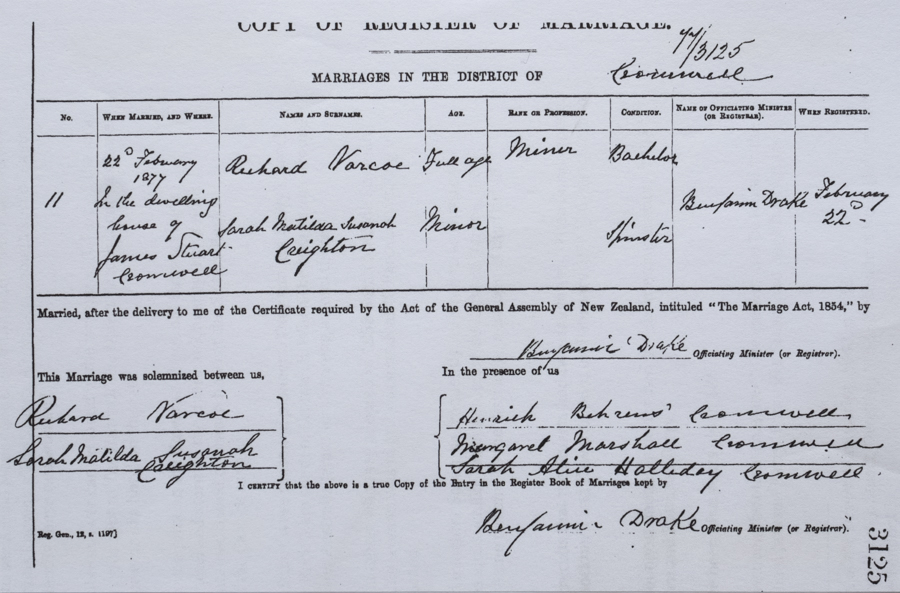 COPY OF REGISTER OF MARRIAGE.
77/3125
MARRIAGES IN THE DISTRICT OF Cromwell
No. WHEN MARRIED, AND WHERE. NAMES AND SURNAMES. AGE. RANK OR PROFESSION. CONDITION. NAME OF OFFICIATING MINISTER (OR REGISTRAR). WHEN REGISTERED.
11
22D February
1877
In the dwelling
house of
James Stuart
Cromwell
Richard Varcoe
Sarah Matilda Susanah
Creighton
Full age
Minor
Miner
Bachelor
Spinster
Benjamin Drake
February
22D
Married, after the delivery to me of the Certificate required by the Act of the General Assembly of New Zealand, intituled "The Marriage Act, 1854," by
Benjamin Drake Officiating Minister (or Registrar).
This Marriage was solemnized between us,
Richard Varcoe
Sarah Matilda Susanah
Creighton
In the presence of us
Henrich Behrens Cromwell
Margaret Marshall Cromwell
Sarah Alice Halliday Cromwell
I CERTIFY that the above is a true Copy of the Entry in the Register Book of Marriages kept by
Benjamin Drake Officiating Minister (or Registrar).
Reg. Gen., 12, s. 1197]
3125